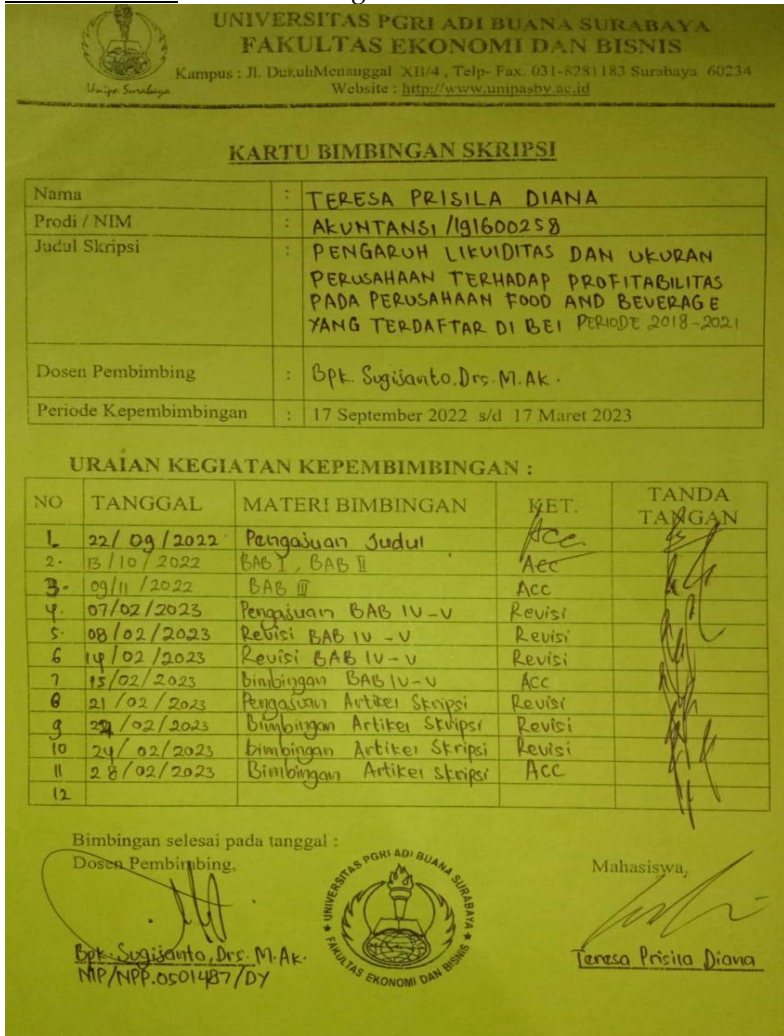 UNIVERSITAS PGRI ADI BUANA SURABAYA
FAKULTAS EKONOMI DAN BISNIS
Kampus : Jl. DukuhMenanggal XII/4 , Telp- Fax. 031-8281183 Surabaya 60234
Website : http://www.unipasby.ac.id
Unipa Surabaya
KARTU BIMBINGAN SKRIPSI
Nama : TERESA PRISILA DIANA
Prodi / NIM : AKUNTANSI /191600258
Judul Skripsi : PENGARUH LIKUIDITAS DAN UKURAN
PERUSAHAAN TERHADAP PROFITABILITAS
PADA PERUSAHAAN FOOD AND BEVERAGE
YANG TERDAFTAR DI BEI PERIODE 2018-2021
Dosen Pembimbing : Bpk. Sugijanto.Drs.M.Ak.
Periode Kepembimbingan : 17 September 2022 s/d 17 Maret 2023
URAIAN KEGIATAN KEPEMBIMBINGAN :
NO TANGGAL MATERI BIMBINGAN KET. TANDA TANGAN
1. 22/09/2022 Pengajuan Judul Acc
2. 13/10/2022 BAB I, BAB II Acc
3. 09/11/2022 BAB III Acc
4. 07/02/2023 Pengajuan BAB IV-V Revisi
5. 08/02/2023 Revisi BAB IV-V Revisi
6 14/02/2023 Revisi BAB IV-V Revisi
7 15/02/2023 Bimbingan BAB IV-V Acc
8 21/02/2023 Pengajuan Artikel Skripsi Revisi
9 /02/2023 Bimbingan Artikel Skripsi Revisi
10 24/02/2023 bimbingan Artikel Skripsi Revisi
11 28/02/2023 Bimbingan Artikel Skripsi Acc
12
Bimbingan selesai pada tanggal :
Dosen Pembimbing,
Mahasiswa,
UNIVERSITAS PGRI ADI BUANA SURABAYA
FAKULTAS EKONOMI DAN BISNIS
Bpk. Sugijanto, Drs. M.Ak.
NIP/NPP.0501487/DY
Teresa Prisila Diana